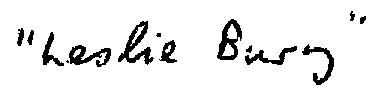 "Leslie Bury"